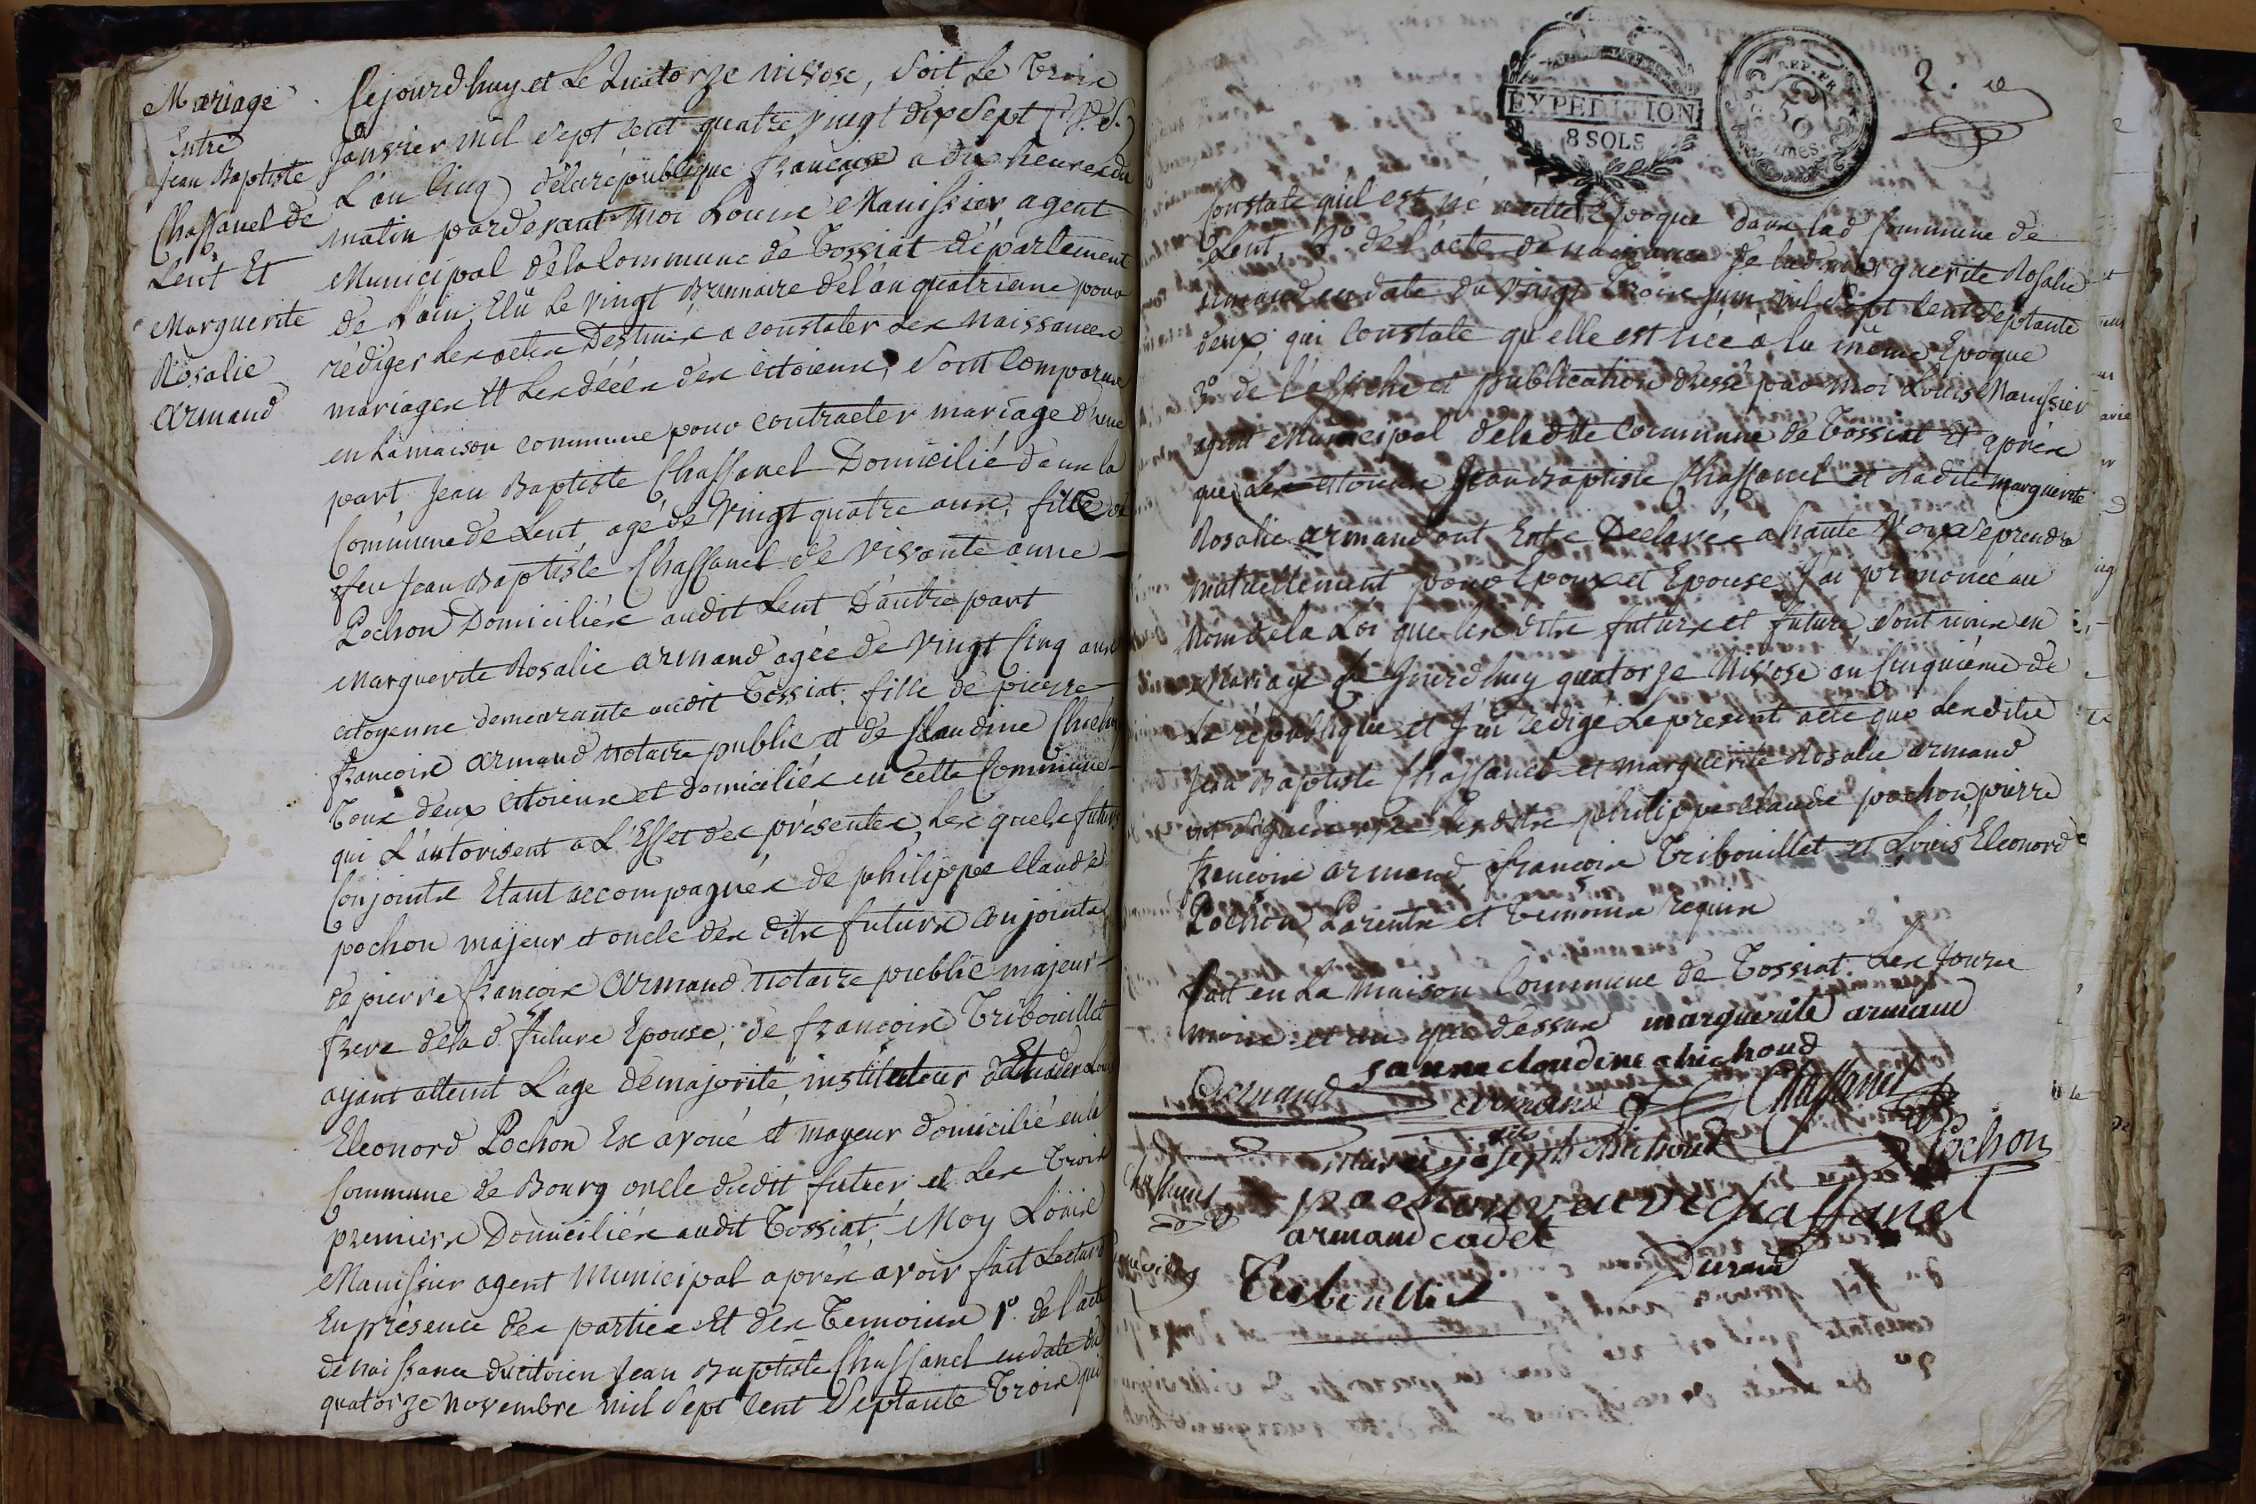 Mariage
Entre
Jean Baptiste
Chassanel de
Lent Et
Marguerite
Rosalie
armand
Cejourdhuy et Le Quatorze nivose, Soit Le Trois
Janvier mil sept cent quatre vingt dix Sept (V. S.)
L'an Cinq de la république francaise a dix heures du
matin pardevant moi Louis Manissier agent
Municipal de la Commune de Tossiat département
de l'ain, Elu Le vingt Brumaire de l'an quatrieme pour
rédiger Les actes Destinés a constater Les Naissances
mariages Et Les décés des citoiens, Sont Comparus
en La maison commune pour contracter mariage d'une
part Jean Baptiste Chassanel Domicilié dans la
Commune de Lent, agé de vingt quatre ans, fils de
feu Jean Baptiste Chassanel de vivante anne
Pochon Domiciliés audit Lent D'autre part
Marguerite Rosalie armand agée de vingt Cinq ans
citoyenne demeurante audit Tossiat fille de pierre
francois armand notaire public et de Claudine
Tous deux citoiens et domiciliés en cette Commune
qui L'autorisent a L'Effet des présentes, Les quels futurs
Conjoints Etant accompagnés de philippe Claude
pochon majeur et oncle des dits futurs Conjoints
de pierre francois armand notaire public majeur
frere de la d. future Epouse, de francois Tribouillet
ayant atteint L'age de majorité, instituteur Et de Louis
Eleonord Pochon Ex avoué et mageur domicilié en la
Commune de Bourg oncle dudit futur et Les Trois
premiers Domiciliés audit Tossiat; Moy Louis
Manissier agent Municipal aprés avoir fait Lecture
En présence des parties Et des Temoins 1° de l'acte
de naissance du citoien Jean Baptiste Chassanel en date du
quatorze novembre mil Sept Cent Septante Trois qui
EXPEDITION
8 SOLS
REP. FR.
50
2. e
Constate qu'il est né a cette Epoque dans lad Commune de
Lent, 2° de l'acte de naissance de lad marguerite Rosalie
armand en date du vingt Trois juin mil Sept Cent Septante
deux, qui Constate qu'elle est née a la même Epoque
3° de l'affiche et publication dressé par moi Louis Manissier
agent Municipal de la dite Commune de Tossiat Et aprés
que Les citoiens Jean Baptiste Chassanel et Ladite marguerite
Rosalie armand ont Ente Declarés a haute Voix Se prendre
mutuellement pour Epoux et Epouse, J'ai prononcé au
Nom de la Loi que Les dits future et future, Sont unis en
Mariage Ce Jourdhuy quatorze Nivose an Cinquiéme de
La république et J'ai rédigé Le present acte que Les dits
Jean Baptiste Chassanel et marguerite Rosalie armand
ont Signés avec Les dits philippe Claude pochon pierre
francois armand, francois Tribouillet et Louis Eleonord
Pochon, Parents et Temoins Requis
fait en La maison Commune de Tossiat Les Jours
mois et an que dessus marguerite armand
janne claudine chichoud
armand armand Chassanel
Pochon
marie joseph chichoud
pochon veuve chassanel
armand cadet
Durand
Tribouillet